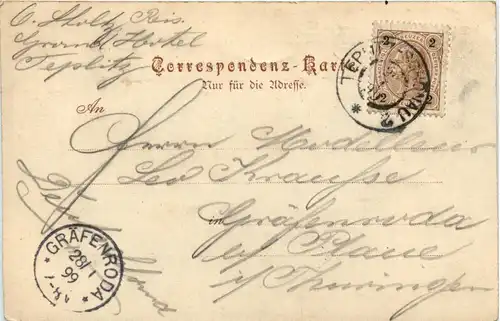 O. Stoltz Reis.
Grand Hotel
Teplitz
Correspondenz-Karte
Nur für die Adresse.
2 2
TEPLITZ
2
An
Herrn
Leo Krausse
in
Gräfenroda
b/ Plaue
i/Thüringen
GRÄFENRODA
28/1
99